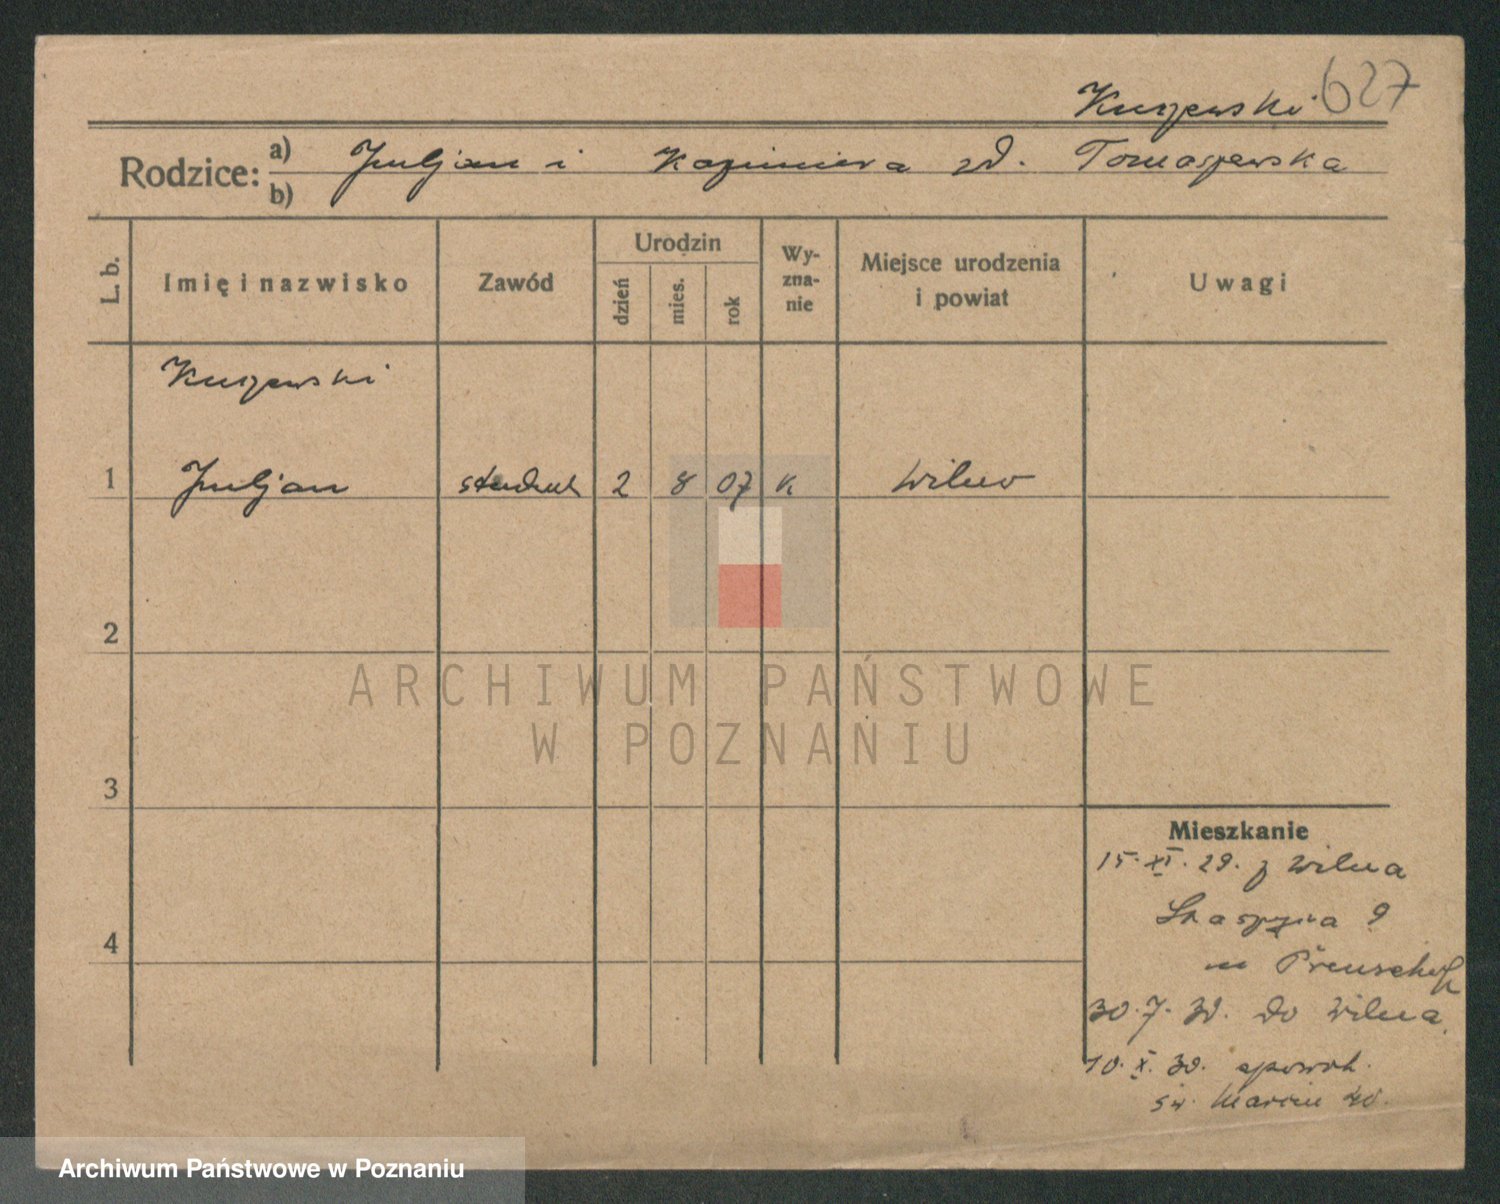 627
Kuszewski
Rodzice: a) Juljan i Kazimiera zd. Tomaszewska
b)
L. b.
Imię i nazwisko
Zawód
Urodzin
dzień
mies.
rok
Wy-
zna-
nie
Miejsce urodzenia
i powiat
Uwagi
Kuszewski
1 Juljan student 2 8 07 k Wilno
2
3
4
Mieszkanie
15.XI.29. z Wilna
9
u
30.7.30. do Wilna.
10.X.30. spowrot.
św. Marcin 40.
ARCHIWUM PAŃSTWOWE
W POZNANIU
Archiwum Państwowe w Poznaniu